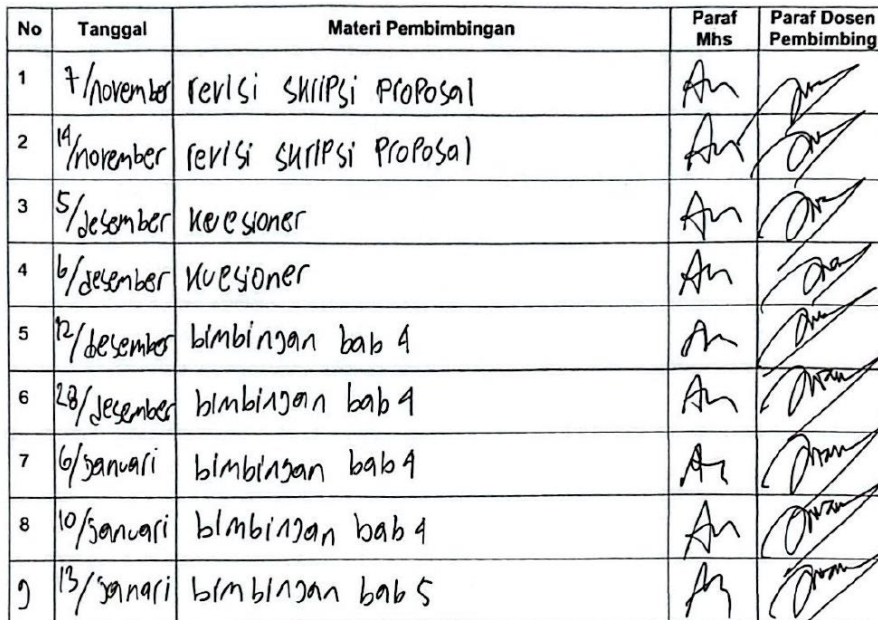 No Tanggal Materi Pembimbingan Paraf Mhs Paraf Dosen Pembimbing
1 7/november revisi skripsi proposal An
2 14/november revisi skripsi proposal An
3 5/desember kuesioner An
4 6/desember kuesioner An
5 12/desember bimbingan bab 4 An
6 28/desember bimbingan bab 4 An
7 6/januari bimbingan bab 4 An
8 10/januari bimbingan bab 4 An
9 13/janari bimbingan bab 5 An